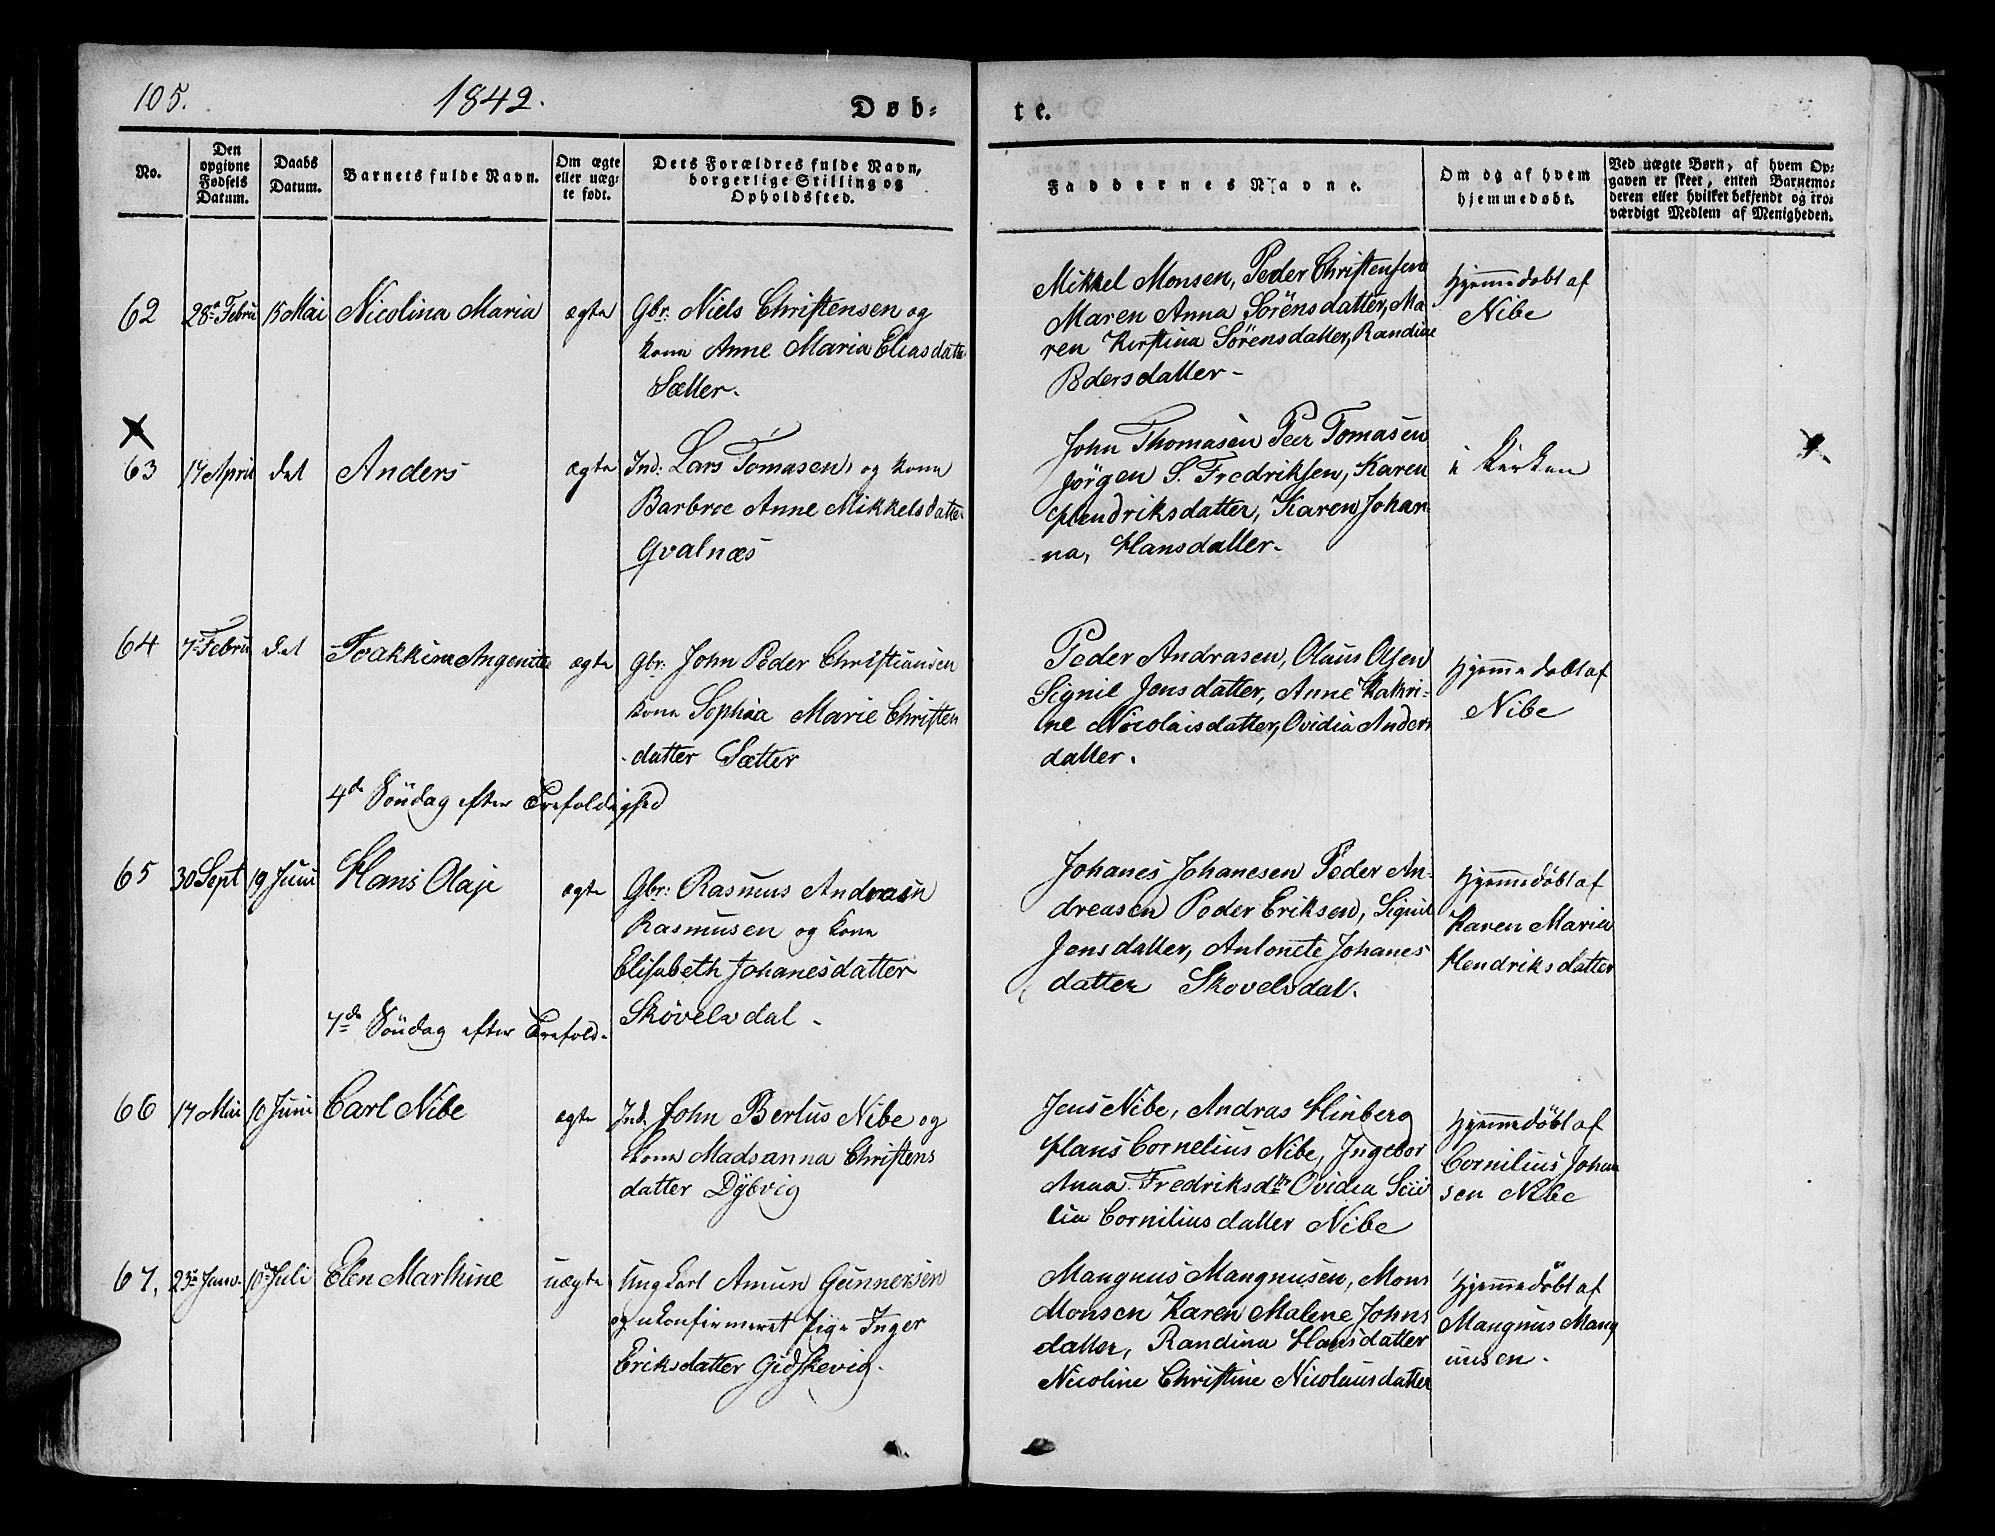 105.
1842.
Døb-
te.
No.
Den opgivne Fødsels Datum.
Daabs Datum.
Barnets fulde Navn.
Om ægte eller uægte født.
Dets Forældres fulde Navn, borgerlige Stilling og Opholdssted.
Faddernes Navne.
Om og af hvem hjemmedøbt.
Ved uægte Børn, af hvem Opgaven er skeet, enten Barnemoderen eller hvilket bekjendt og troværdigt Medlem af Menigheden.
62
28 Febru
15 Mai
Nicolina Maria
ægte
Gbr: Niels Christensen og
kone Anne Maria Eliasdatt
Sætter.
Mikkel Monsen, Peder Christensen
Maren Anna Sörensdatter, Ma
ren Kirstina Sörensdatter, Randine
Pedersdatter-
Hjemmedøbt af
Nibe
63
17 April
det
Anders
ægte
Ind: Lars Tomasen, og kone
Barbroe Anne Mikkelsdatte
Gvalnæs
John Thomasen Peer Tomasen
Jörgen S. Fredriksen, Karen
Hendriksdatter, Karen Johan
na, Hansdatter.
i Kirken
64
7 Febru
det
Joakkim Angenitte
ægte
Gbr: John Peder Christiansen
kone Sophia Marie Christen
datter Sætter
Peder Andrasen, Olaus Olsen
Signil Jensdatter, Anne Katri-
ne Nicolaisdatter, Ovidia Anders
datter.
Hjemmedøbt af
Nibe
4de Söndag efter Trefoldighed
65
30 Sept
19 Juni
Hans Olaje
ægte
Gbr: Rasmus Andreasen
Rasmusen og kone
Elisabeth Johanesdatter
Skovelvdal-
Johanes Johanesen Peder An-
dreasen Peder Eriksen, Signil
Jensdatter, Antonete Johanes
datter Skovelvdal.
Hjemmedøbt af
Karen Maria
Hendriksdatter
7de Söndag efter Trefold-
66
17 Mai
10 Juni
Carl Nibe
ægte
Ind. John Bertus Nibe og
kone Madsanna Christens
datter Dybvig
Jens Nibe, Andras Hinberg
Hans Cornelius Nibe, Ingebor
Anna Fredriksdtr Ovidia
lia Corniliusdatter Nibe
Hjemmedøbt af
Cornilius Johan
sen Nibe
67.
23 Janv.
10 Juli
Elen Marthine
uægte
Ungkarl Amun Gunnersen
og ukonfirmeret Pige Inger
Eriksdatter Gidskevig.
Mangnus Mangnusen, Mons
Monsen Karen Malene Johns
datter, Randina Hansdatter
Nicoline Christine Nicolausdatter
Hjemmedøbt af
Mangnus Mang
nusen.